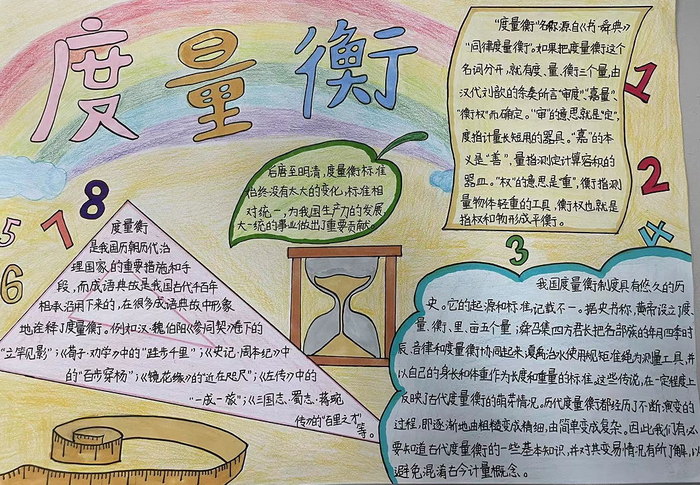 度量衡
"度量衡"名称源自《书·舜典》
"同律度量衡"。如果把度量衡这个
名词分开,就有度、量、衡三个量,由
汉代刘歆的条奏所言"审度"、"嘉量"、
"衡权"而确定。"审"的意思就是"定",
度指计量长短用的器具。"嘉"的本
义是"善",量指测定计算容积的
器皿。"权"的意思是"重",衡指测
量物体轻重的工具,衡权也就是
指权和物形成平衡。
后唐至明清,度量衡标准
始终没有太大的变化,标准相
对统一,为我国生产力的发展、
大一统的事业做出了重要贡献。
1
2
3
4
5
6
7
8
度量衡
是我国历朝历代治
理国家的重要措施和手
段,而成语典故是我国古代千百年
相承沿用下来的,在很多成语典故中形象
地诠释了度量衡。例如汉·魏伯阳《参同契》卷下的
"立竿见影";《荀子·劝学》中的"跬步千里";《史记·周本纪》中
的"百步穿杨";《镜花缘》的"近在咫尺";《左传》中的
"一成一旅";《三国志·蜀志·蒋琬
传》的"百里之才"等。
我国度量衡制度具有悠久的历
史。它的起源和标准,记载不一。据史书称,黄帝设立了度、
量、衡、里、亩五个量;舜召集四方君长把各部族的年月四季时
辰、音律和度量衡协同起来;夏禹治水使用规矩准绳为测量工具,并
以自己的身长和体重作为长度和重量的标准。这些传说,在一定程度上
反映了古代度量衡的萌芽情况。历代度量衡都经历了不断演变的
过程,即逐渐地由粗糙变成精细,由简单变成复杂。因此我们有必
要知道古代度量衡的一些基本知识,并对其变易情况有所了解,以
避免混淆古今计量概念。